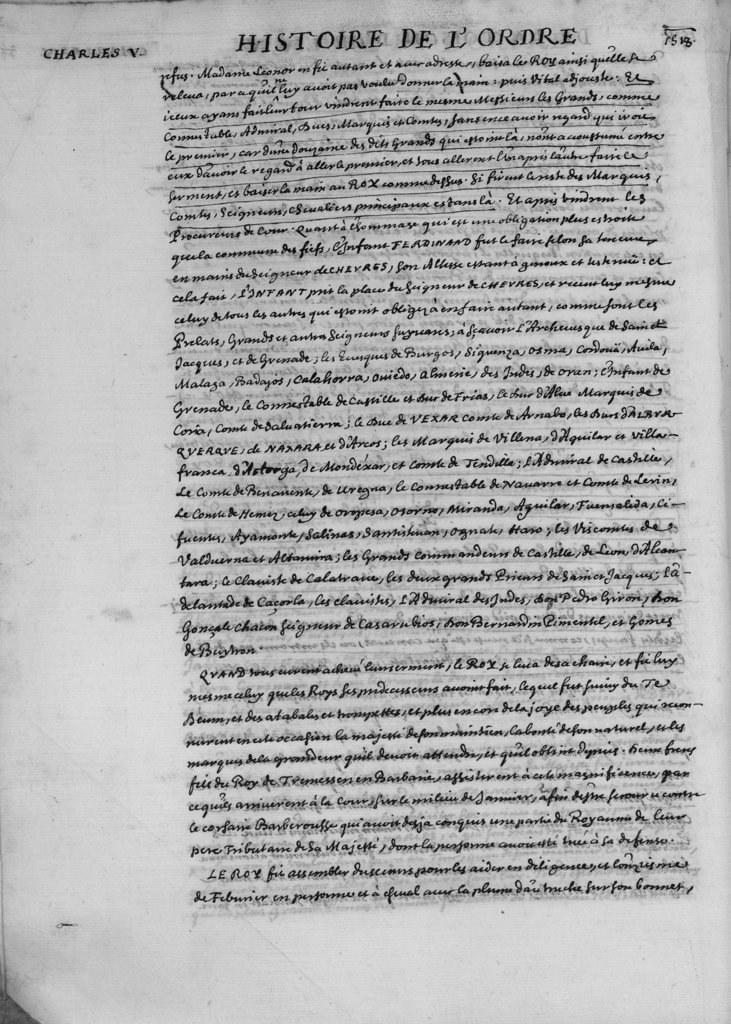 HISTOIRE DE L'ORDRE
1518.
CHARLES V.
refus. Madame Leonor en fit autant et avec adresse, baisa le ROY ainsi qu'elle se
releva, parce qu'il luy avoit pas voulu donner la main: puis Vital adjouste: Et
iceux ayans fait leur tour vindrent faire le mesme Messieurs les Grands, comme
Connestable, Admiral, Ducs, Marquis et Comtes, sans en ce avoir regard qui iroit
le premier, car d'une douzaine des dits Grands qui estoint là, n'ont accoustumé entre
eux d'avoir le regard à aller le premier, et tous allerent l'un apres l'autre faire le
serment, et baiser la main au ROY comme dessus. Si firent le reste des Marquis,
Comtes, Seigneurs, Chevaliers principaux estans là. Et apres vindrent les
Procureurs de Cour. Quant à l'hommage qui est une obligation plus estroite
que la commune des fiefs, l'Infant FERDINAND fut le faire selon sa teneur
en mains du Seigneur de CHEVRES, son Altesse estant à genoux et teste nuë: et
cela fait, L'INFANT prit la place du Seigneur de CHEVRES, et receut luy mesme
celuy de tous les autres qui estoint obligez à en faire autant, comme sont les
Prelats, Grands et autres Seigneurs suyvans; à sçavoir L'Archevesque de Sainct
Jacques, et de Grenade; les Evesques de Burgos, Siguenza, Osma, Cordouë, Avila,
Malaga, Badajós, Calahorra, Oviedo, Almerie, des Indes, de Oran; l'Infant de
Grenade, le Connestable de Castille et Duc de Frias, le Duc d'Alve Marquis de
Coria, Comte de Salvatierra; le Duc de VEXAR Comte de Arnabo, les Ducs d'ALBVR-
QVERQVE, de NAXARA et d'Arcos; les Marquis de Villena, d'Aquilar et Villa-
franca, d'Astorga, de Mondéxar, et Comte de Tendille; l'Admiral de Castille,
Le Comte de Benavente, de Uregna, le Connestable de Navarre et Comte de Lerin,
Le Comte de celuy de Oropesa, Osorno, Miranda, Aguilar, Fuensalida, Ci-
fuentes, Ayamonte, Salinas, Santistevan, Ognate, Haro; les Viscomtes de
Valduerna et Altamira; les Grands Commandeurs de Castille, de Leon, d'Alcan-
tara; le Claviste de Calatrave, les deux grands Prieurs de Sainct Jacques; l'A-
delantade de Caçorla, les clavistes, l'Admiral des Indes, Don Pedro Giron, Don
Gonçale Chacon Seigneur de Casarubios, Don Bernardin Pimentel, et Gomes
de Buytron.
QUAND tous eurent achevé leur serment, le ROY se leva de sa chaire, et fit luy
mesme celuy que les Roys ses predecesseurs avoint fait, lequel fut suivy du Te
Deum, et des atabales et trompettes, et plus encore de la joye des peuples qui recon-
nurent en cete occasion la majesté de son maintien, la bonté de son naturel, et les
marques de la grandeur qu'il devoit attendre, et qu'il obtint depuis. Deux freres
fils du Roy de Tremessen en Barbarie, assisterent à cete magnificence, par
ce qu'ils arriverent à la Cour, sur le milieu de Janvier, afin d'estre secouru contre
le corsaire Barberousse qui avoit desja conquis une partie du Royaume de leur
pere Tributaire de Sa Majesté, dont la personne avoit esté tuée à sa defense.
LE ROY fit assembler du secours pour les aider en diligence, et l'onziesme
de Febvrier en personne et à cheval avec la plume d'autruche sur son bonnet,